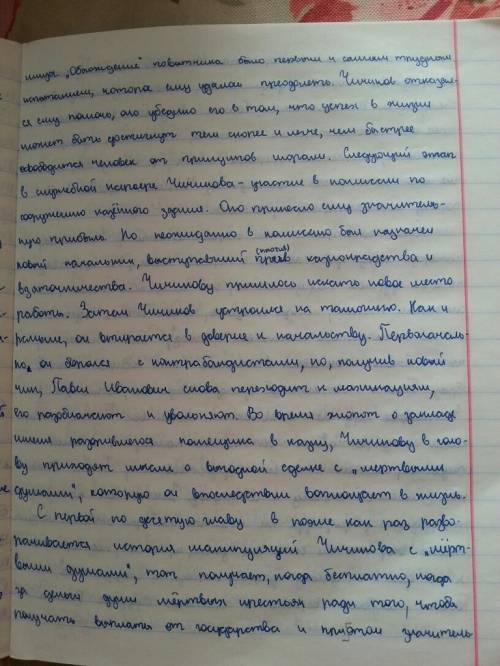 ница. „Обхождение" повытчика было первым и самым трудным
испытанием, которое ему удалось преодолеть. Чичиков отказал-
ся ему помочь, это убедило его в том, что успех в жизни
может быть достигнут тем скорее и легче, чем быстрее
освободится человек от принципов морали. Следующий этап
в служебной карьере Чичикова - участие в комиссии по
сооружению казённого здания. Оно принесло ему значитель-
ную прибыль. Но неожиданно в комиссию был назначен
новый начальник, выступавший против (против) казнокрадства и
взяточничества. Чичикову пришлось искать новое место
работы. Затем Чичиков устроился на таможню. Как и
раньше, он втирается в доверие к начальству. Первоначаль-
но, он боролся с контрабандистами, но, получив новый
чин, Павел Иванович снова переходит к махинациям,
его разоблачают и увольняют. Во время хлопот о закладе
имения разорившегося помещика в казну, Чичикову в голо-
ву приходят мысли о выгодной сделке с „мертвыми
душами", которую он впоследствии воплощает в жизнь.
С первой по десятую главу в поэме как раз разво-
рачивается история манипуляций Чичикова с „мёрт-
выми душами", тот получает, когда бесплатно, когда
за деньги души мёртвых крестьян ради того, чтобы
получать выплаты от государства и при этом значитель